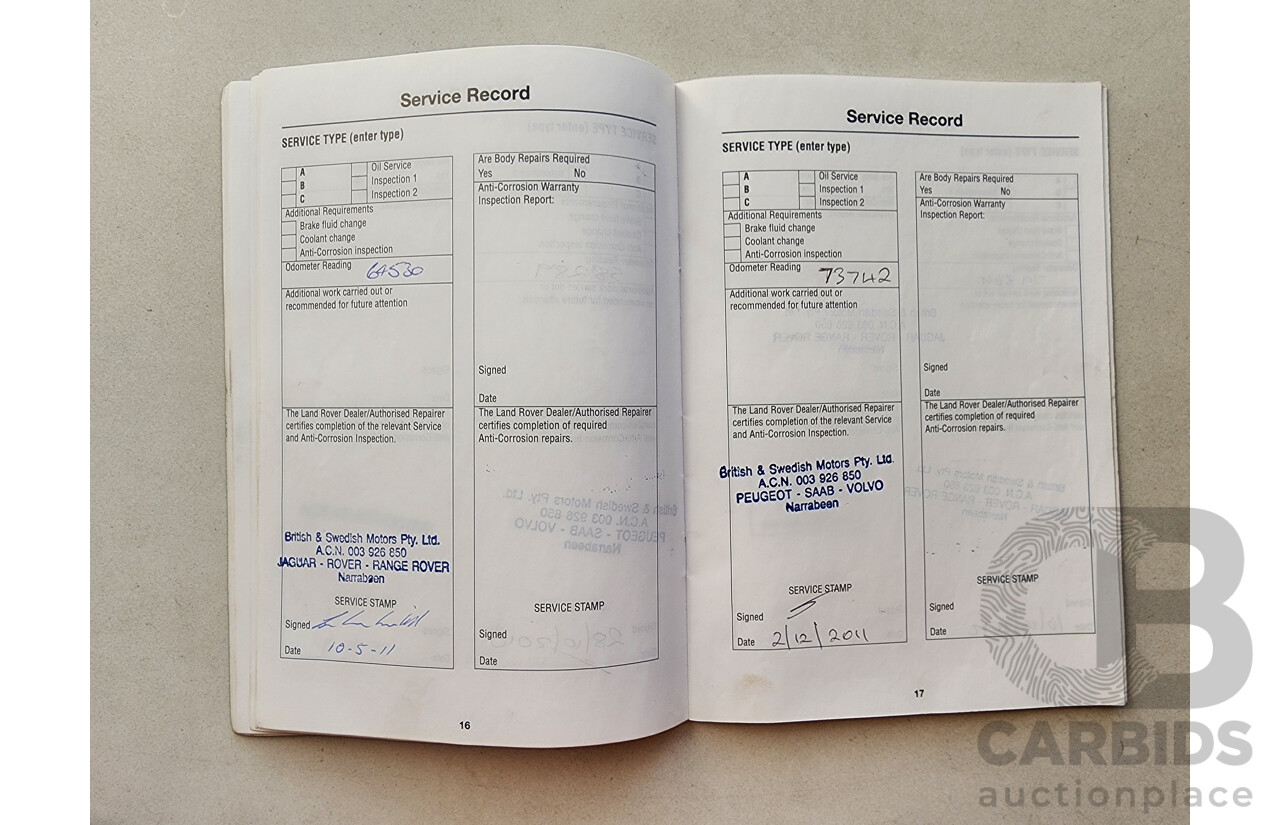 Service Record
SERVICE TYPE (enter type)
A
B
C
Oil Service
Inspection 1
Inspection 2
Additional Requirements
Brake fluid change
Coolant change
Anti-Corrosion inspection
Odometer Reading 64530
Additional work carried out or
recommended for future attention
The Land Rover Dealer/Authorised Repairer
certifies completion of the relevant Service
and Anti-Corrosion Inspection.
British & Swedish Motors Pty. Ltd.
A.C.N. 003 926 850
JAGUAR - ROVER - RANGE ROVER
Narrabeen
SERVICE STAMP
Signed
Date 10-5-11
Are Body Repairs Required
Yes No
Anti-Corrosion Warranty
Inspection Report:
Signed
Date
The Land Rover Dealer/Authorised Repairer
certifies completion of required
Anti-Corrosion repairs.
SERVICE STAMP
Signed
Date
16
Service Record
SERVICE TYPE (enter type)
A
B
C
Oil Service
Inspection 1
Inspection 2
Additional Requirements
Brake fluid change
Coolant change
Anti-Corrosion inspection
Odometer Reading 73742
Additional work carried out or
recommended for future attention
The Land Rover Dealer/Authorised Repairer
certifies completion of the relevant Service
and Anti-Corrosion Inspection.
British & Swedish Motors Pty. Ltd.
A.C.N. 003 926 850
PEUGEOT - SAAB - VOLVO
Narrabeen
SERVICE STAMP
Signed
Date 2/12/2011
Are Body Repairs Required
Yes No
Anti-Corrosion Warranty
Inspection Report:
Signed
Date
The Land Rover Dealer/Authorised Repairer
certifies completion of required
Anti-Corrosion repairs.
SERVICE STAMP
Signed
Date
17
CARBIDS
auctionplace